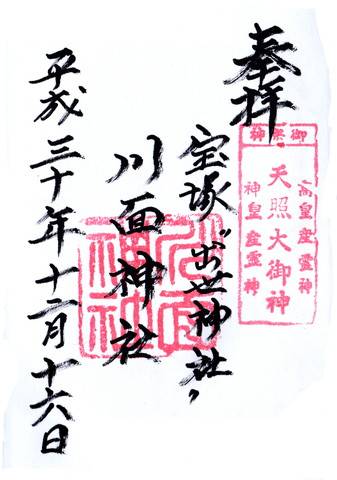 奉拝
御祭神
高皇産霊神
天照大御神
神皇産霊神
宝塚“出世神社”
川面神社
川面神社
平成三十年十二月十六日